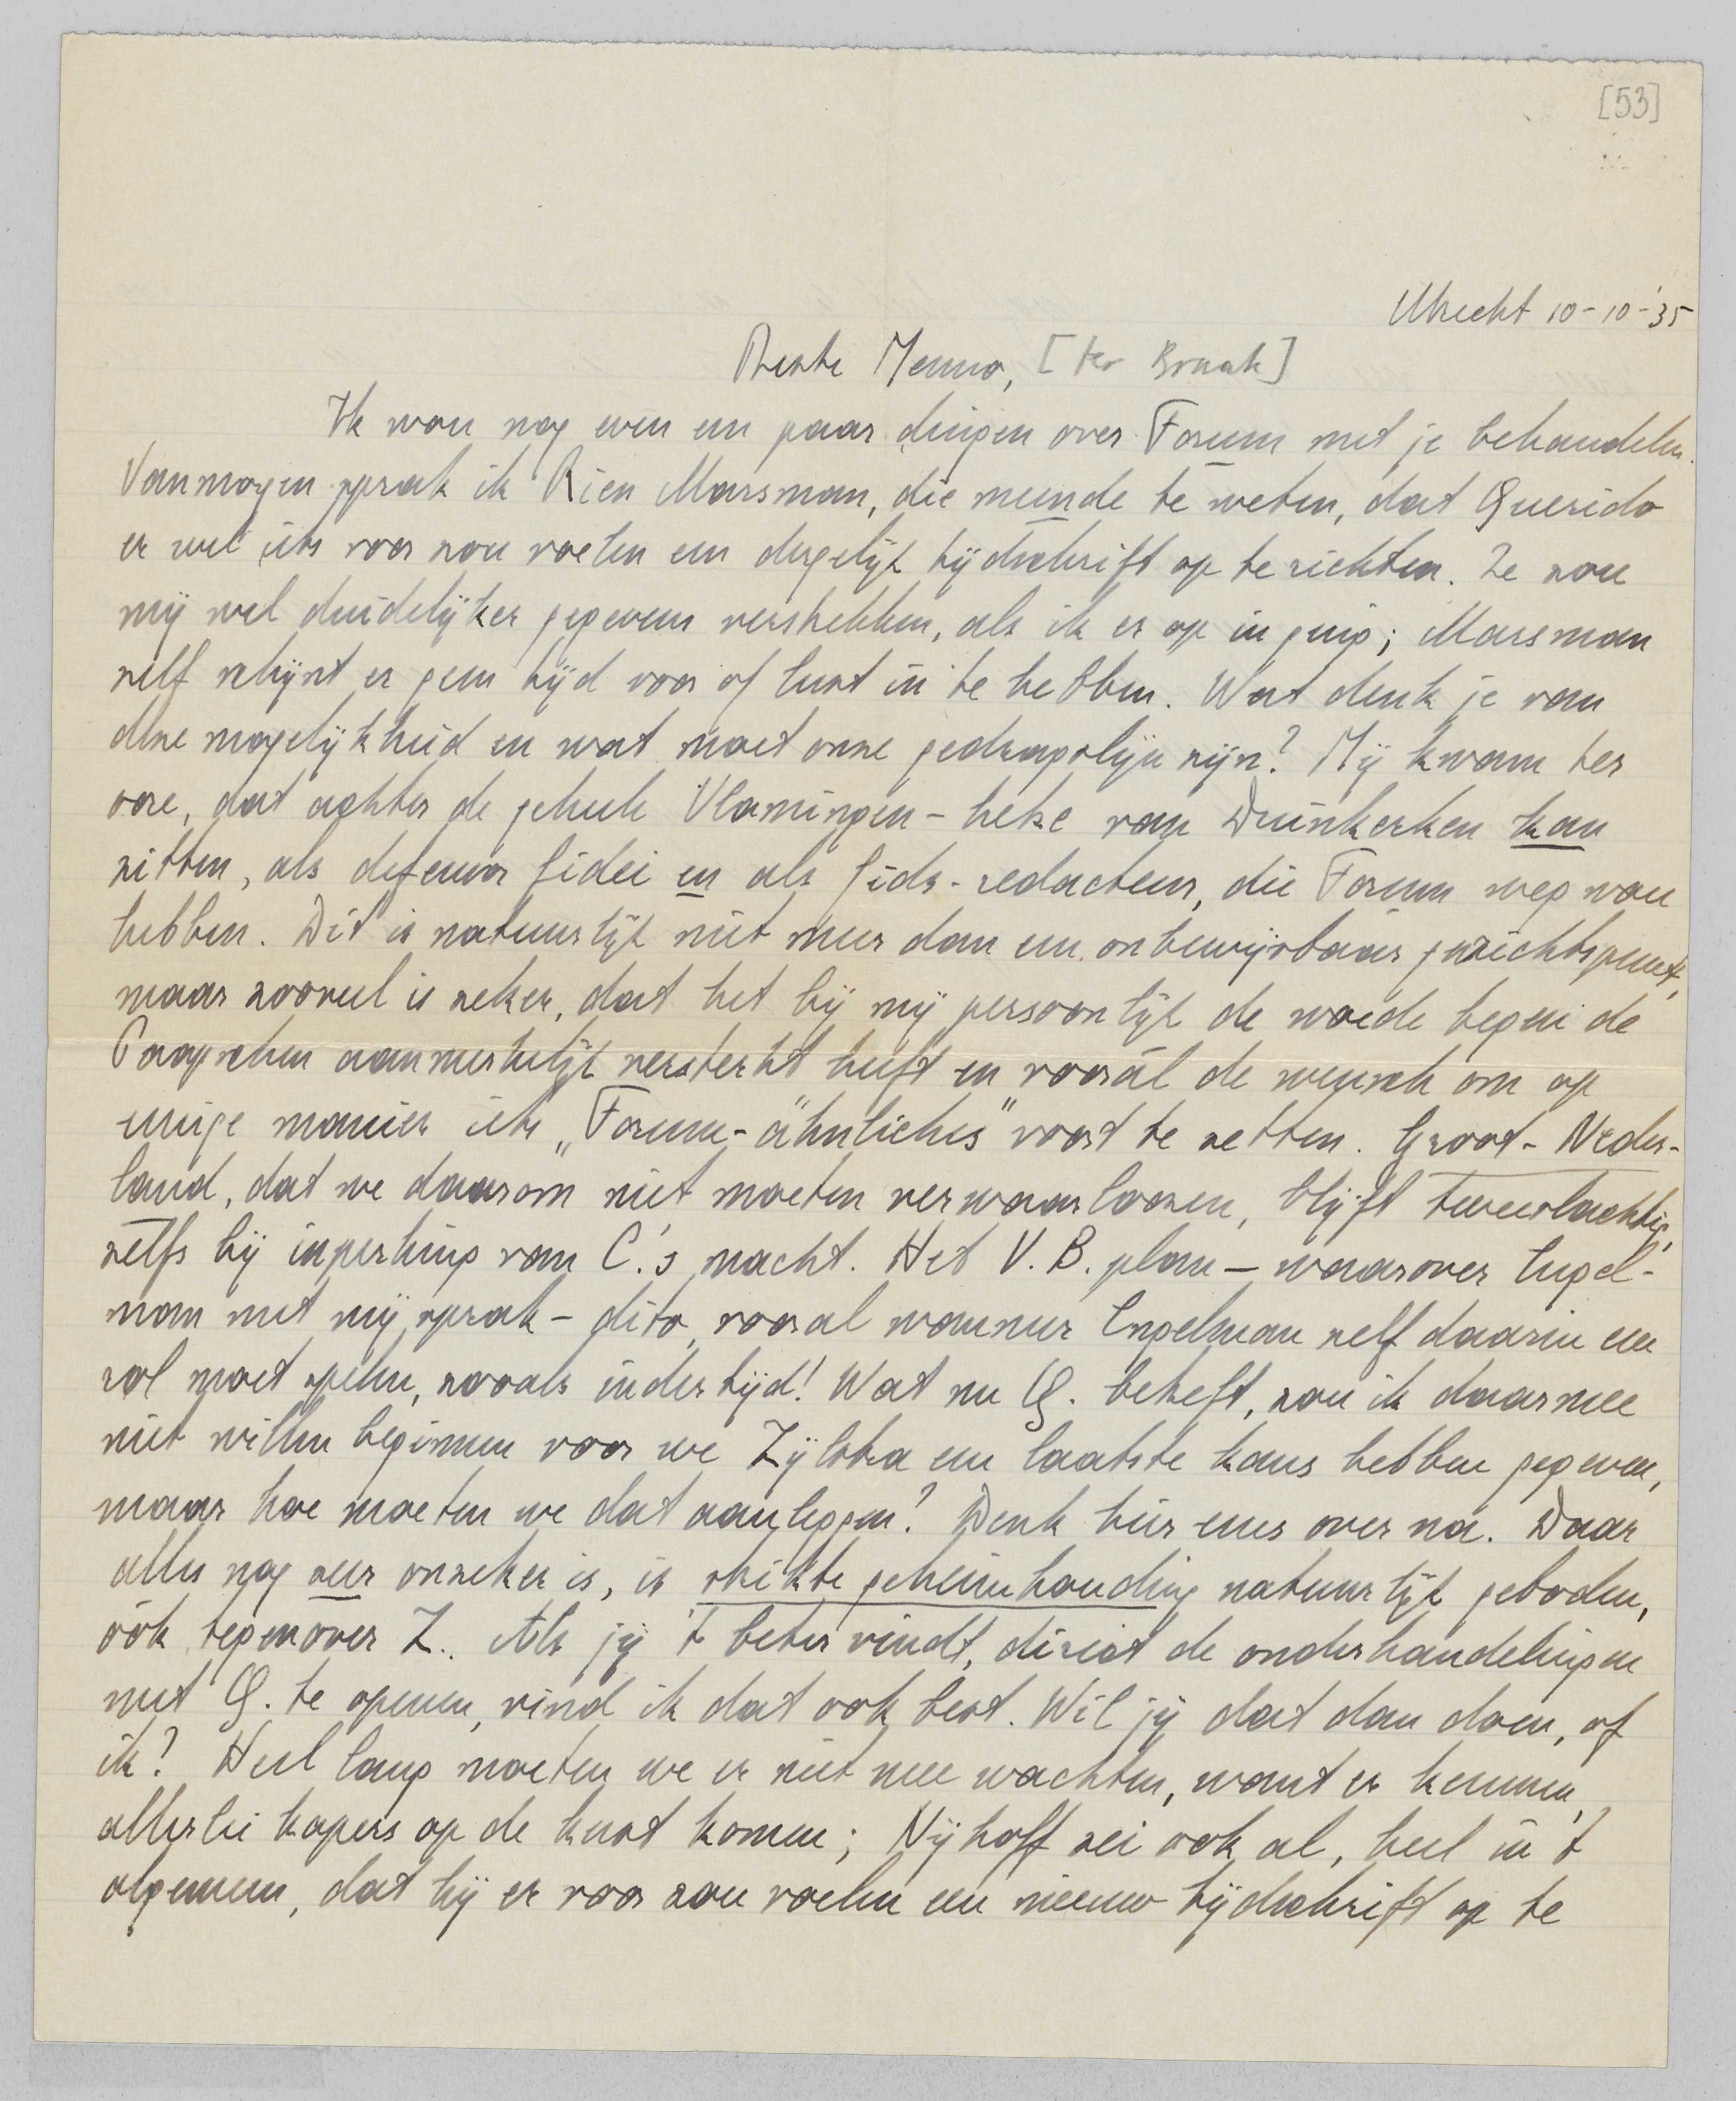 [53]
Utrecht 10-10-'35
Beste Menno, [ter Braak]
Ik wou nog even een paar dingen over Forum met je behandelen.
Vanmorgen sprak ik Rien Marsman, die meende te weten, dat Querido
er wel iets voor zou voelen een dergelijk tijdschrift op te richten. Ze zou
mij wel duidelijker gegevens verstrekken, als ik er op in ging; Marsman
zelf schijnt er geen tijd voor of lust in te hebben. Wat denk je van
deze mogelijkheid en wat moet onze gedragslijn zijn? Mij kwam ter
oore, dat achter de geheele Vlamingen-hetze van Duinkerken kan
zitten, als defensor fidei en als Gids-redacteur, die Forum weg wou
hebben. Dit is natuurlijk niet meer dan een onbewijsbaar gezichtspunt,
maar zooveel is zeker, dat het bij mij persoonlijk de woede tegen de
Paapschen aanmerkelijk versterkt heeft en vooral de wensch om op
eenige manier iets „Forum-ähnliches" voort te zetten. Groot-Neder-
land, dat we daarom niet moeten verwaarloozen, blijft tweeslachtig,
zelfs bij inperking van C.'s macht. Het V.B. plan – waarover Engel-
man met mij sprak – dito, vooral wanneer Engelman zelf daarin een
rol moet spelen, zooals indertijd! Wat nu Q. betreft, zou ik daarmee
niet willen beginnen voor we Zijlstra een laatste kans hebben gegeven,
maar hoe moeten we dat aanleggen? Denk hier eens over na. Daar
alles nog zeer onzeker is, is strikte geheimhouding natuurlijk geboden,
óók tegenover Z.. Als jij 't beter vindt, direct de onderhandelingen
met Q. te openen, vind ik dat ook best. Wil jij dat dan doen, of
ik? Heel lang moeten we er niet mee wachten, want er kunnen
allerlei kapers op de kust komen; Nijhoff zei ook al, heel in 't
algemeen, dat hij er voor zou voelen een nieuw tijdschrift op te